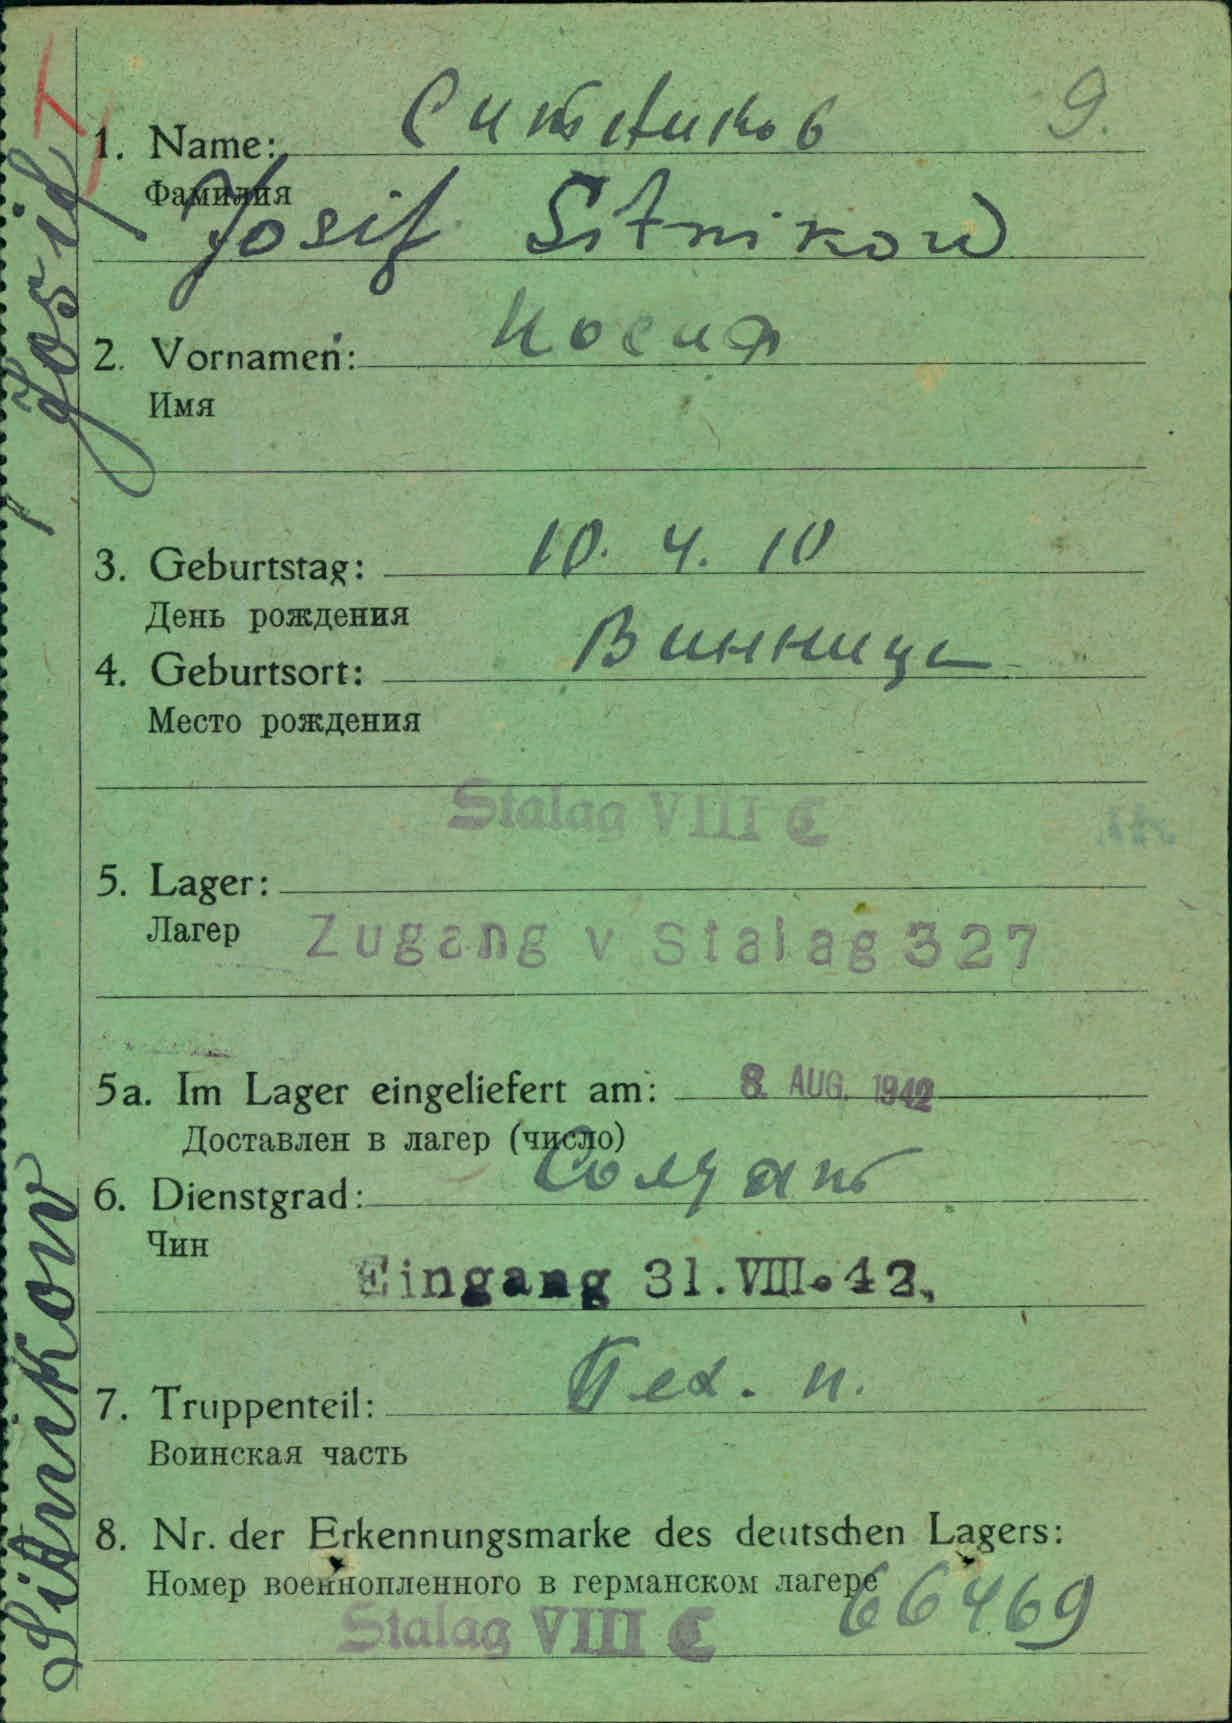 Ситников 9.
1. Name:
Фамилия
Josif Sitnikow
Иосиф
2. Vornamen:
Имя
10. 4. 10
3. Geburtstag:
День рождения
Винница
4. Geburtsort:
Место рождения
Stalag VIII C
5. Lager:
Лагер Zugang v Stalag 327
5a. Im Lager eingeliefert am: 8. AUG. 1942
Доставлен в лагер (число)
6. Dienstgrad: Солдат
Чин
Eingang 31.VIII.42.
7. Truppenteil: Пех. п.
Воинская часть
8. Nr. der Erkennungsmarke des deutschen Lagers:
Номер военнопленного в германском лагере 66469
Stalag VIII C
Sitnikow Josif